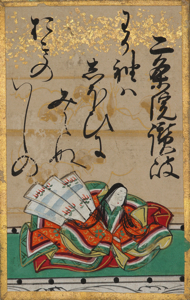 二条院讃岐
わか袖ハ
しほひに
みえぬ
おきの
いしの